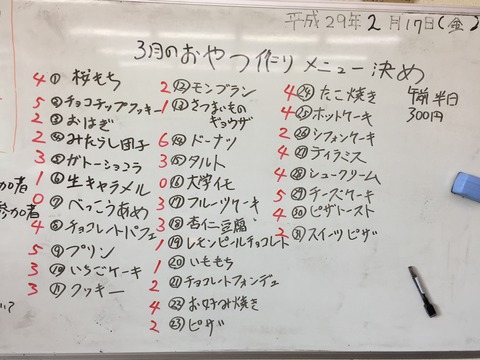 平成29年2月17日(金)
3月のおやつ作りメニュー決め
4 ① 桜もち
5 ② チョコチップクッキー
2 ③ おはぎ
2 ④ みたらし団子
3 ⑤ ガトーショコラ
1 ⑥ 生キャラメル
0 ⑦ べっこうあめ
4 ⑧ チョコレートパフェ
5 ⑨ プリン
3 ⑩ いちごケーキ
3 ⑪ クッキー
2 ⑫ モンブラン
1 ⑬ さつまいもの
ギョウザ
6 ⑭ ドーナツ
3 ⑮ タルト
0 ⑯ 大学イモ
3 ⑰ フルーツケーキ
3 ⑱ 杏仁豆腐
1 ⑲ レモンピールチョコレト
1 ⑳ いももち
2 ㉑ チョコレートフォンデュ
4 ㉒ お好み焼き
2 ㉓ ピザ
4 ㉔ たこ焼き
4 ㉕ ホットケーキ
2 ㉖ シフォンケーキ
4 ㉗ ティラミス
4 ㉘ シュークリーム
5 ㉙ チーズケーキ
4 ㉚ ピザトースト
2 ㉛ スイーツピザ
午前半日
300円
加者
参加者